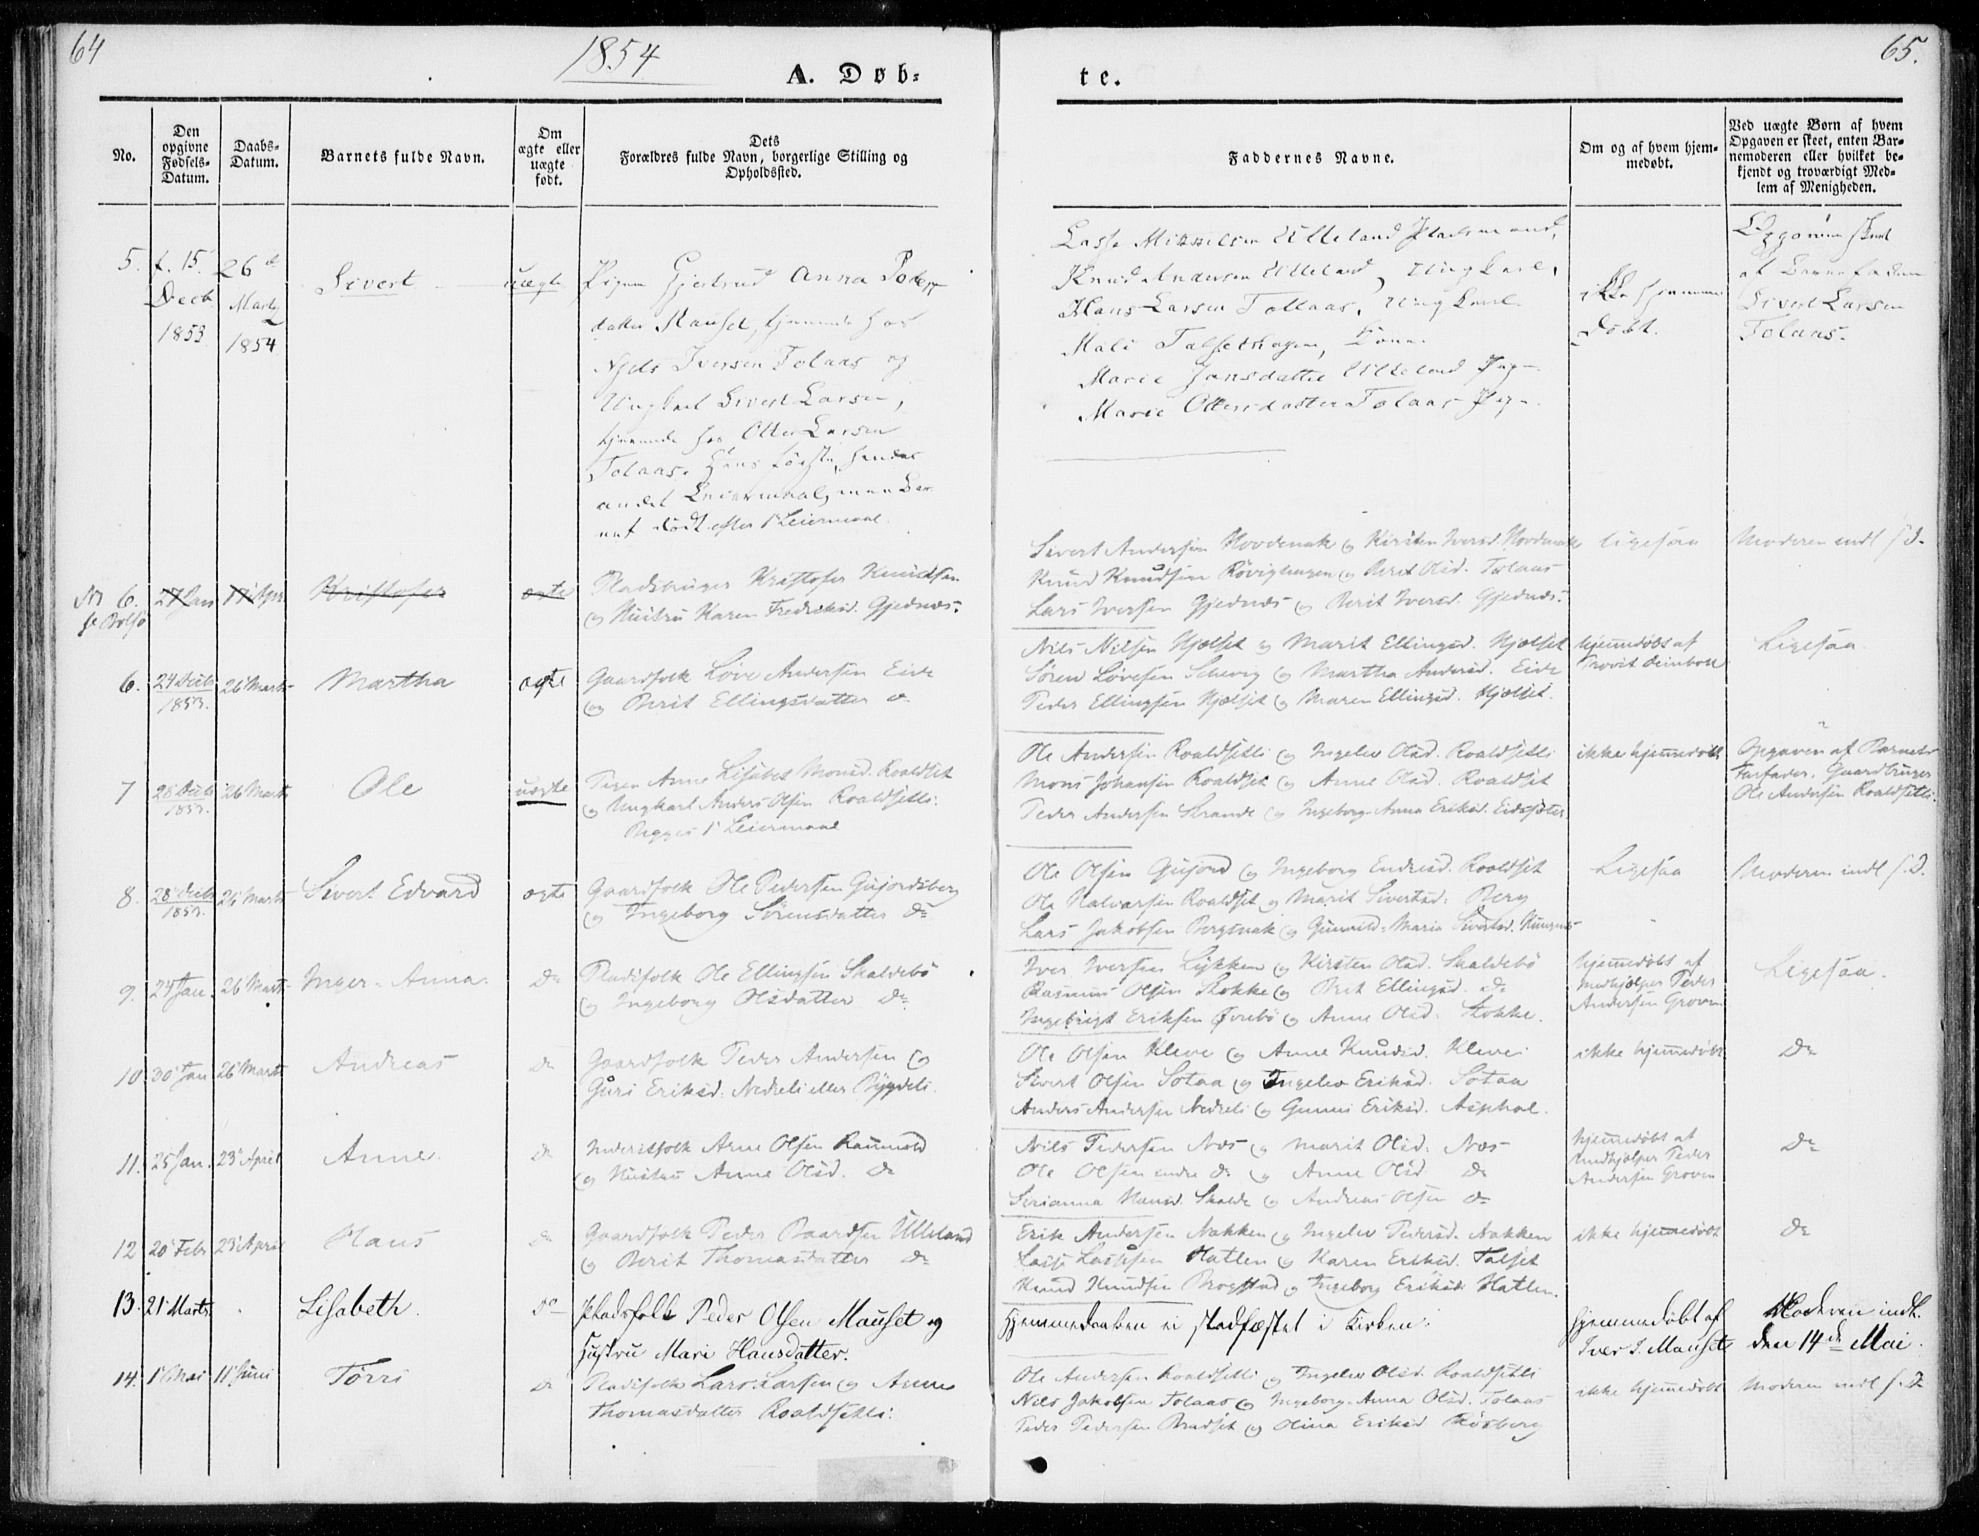 64
1854
A. Døb-
te.
65.
No.
Den opgivne Fødsels-Datum.
Daabs-Datum.
Barnets fulde Navn.
Om ægte eller uægte født.
Dets Forældres fulde Navn, borgerlige Stilling og Opholdssted.
Faddernes Navne.
Om og af hvem hjem-medøbt.
Ved uægte Børn af hvem Opgaven er skeet, enten Bar-nemoderen eller hvilket be-kjendt og troværdigt Med-lem af Menigheden.
5.
f. 15.
Decb
1853
26de
Marts
1854
Sivert
uægte
Pigen Gjertrud Anna Peders-
datter Mauset, tjenende hos
Niels Iversen Tolaas og
Ungkarl Sivert Larsen,
tjenende hos Otter Larsen
Tolaas. Hans første, hendes
andet Leiermaal, men Bar-
net født efter 1 Leiermaal.
Lasse Mikkelsen Ulleland Pladsmand,
Knud Andersen Ulleland, Ungkarl,
Hans Larsen Tollaas, Ungkarl
Mali Talsethagen, Kone
Marie Jonsdatter Ulleland Pige
Marie Ottersdatter Tolaas Pige
ikke hjemme
døbt.
Opgaven skeet
af Barnefaderen
Sivert Larsen
Tolaas.
No 6.
se Bolsø
24 Jan
17 Apr.
Kristofer
ægte
Pladsbruger Kristofer Knudsen
og Hustru Karen Fredriksd. Gjednæs.
Sivert Andersen Hovdenak og Kirsten Iversd. Hovdenak
Knud Knudsen Røvighagen og Berit Olsd. Tolaas
Lars Iversen Gjednæs og Berit Iversd. Gjednæs.
ligesaa
Moderen indl. s. D.
6.
24 Decb
1853.
26 Marts
Martha
ægte
Gaardfolk Løve Andersen Eide
og Berit Ellingsdatter do
Nils Nilsen Hjelset og Marit Ellingsd. Hjelset
Søren Løvesen Schevig og Martha Andersd. Eide
Peder Ellingsen Hjelset og Maren Ellingsd. Hjelset.
hjemmedøbt af
Provst Deinboll
Ligesaa
7
28 Decb
1853.
26 Marts
Ole
uægte
Pigen Anne Lisabet Monsd. Roaldset
og Ungkarl Anders Olsen Roaldsetli.
Begges 1 Leiermaal
Ole Andersen Roaldsetli og Ingelev Olsd. Roaldsetli
Mons Johansen Roaldset og Anne Olsd. Roaldset
Peder Andersen Strande og Ingeborg Anna Eriksd. Eidssæter
ikke hjemmedøbt
Opgaven af Barnets
Farfader, Gaardbruger
Ole Andersen Roaldsetli.
8.
28 Decb
1853.
26 Marts
Sivert Edvard
ægte
Gaardfolk Ole Pedersen Gujordsberg
og Ingeborg Sørensdatter do
Ole Olsen Gujord og Ingeborg Endresd. Roaldset
Ole Halvorsen Roaldset og Marit Sivertsd. Berg
Lars Jakobsen Bergtvak og Gunnild Maria Sivertsd.
Ligesaa
Moderen indl. s. D.
9.
24 Jan.
26 Marts
Inger Anna
do
Pladsfolk Ole Ellingsen Skaldebø
og Ingeborg Olsdatter do
Iver Iversen Lykken og Kirsten Olsd. Skaldebø
Rasmus Olsen Stokke og Brit Ellingsd. do
Ingebrigt Eriksen Øvrebø og Anne Olsd. Stokke.
hjemmedøbt af
Medhjælper Peder
Andersen Groven
Ligesaa.
10
30 Jan
26 Marts
Andreas
do
Gaardfolk Peder Andersen og
Guri Eriksd. Nedreli eller Bygdeli.
Ole Olsen Kleve og Anne Knudsd. Kleve
Sivert Olsen Sotaa og Ingelev Eriksd. Sotaa
Anders Andersen Nedreli og Gunni Eriksd. Asphol.
ikke hjemmedøbt
do
11.
25 Jan.
23 April
Anne
do
Inderstfolk Arne Olsen Raumold
og Hustru Anne Olsd. do
Nils Pedersen Næs og Marit Olsd. Næs
Ole Olsen indre do og Anne Olsd. do
Serianna Hansd. Skalde og Andreas Olsen do
hjemmedøbt af
Medhjælper Peder
Andersen Groven
do
12
20 Febr
23 April
Hans
do
Gaardfolk Peder Baardsen Ulleland
og Berit Thomasdatter do
Erik Andersen Nakken og Ingelev Pedersd. Nakken
Lasse Lassesen Hatlen og Karen Eriksd. Talset
Knud Knudsen Brogstad og Ingeborg Eriksd. Hatlen.
ikke hjemmedøbt
do
13.
21 Marts
Lisabeth.
do
Pladsfolk Peder Olsen Mauset og
Hustru Mari Hansdatter.
Hjemmedaaben ei stadfæstet i Kirken.
Hjemmedøbt af
Iver I. Mauset
Moderen indl.
den 14de Mai.
14.
1 Mai
11 Juni
Tørri
do
Pladsfolk Lars Larsen og Anne
Thomasdatter Roaldsetli.
Ole Andersen Roaldsetli og Ingelev Olsd. Roaldsetli
Nils Jakobsen Tolaas og Ingeborg Anna Olsd. Tolaas
Peder Pedersen Bradset og Olina Eriksd. Røsberg
ikke hjemmedøbt
Moderen indl. s. D.